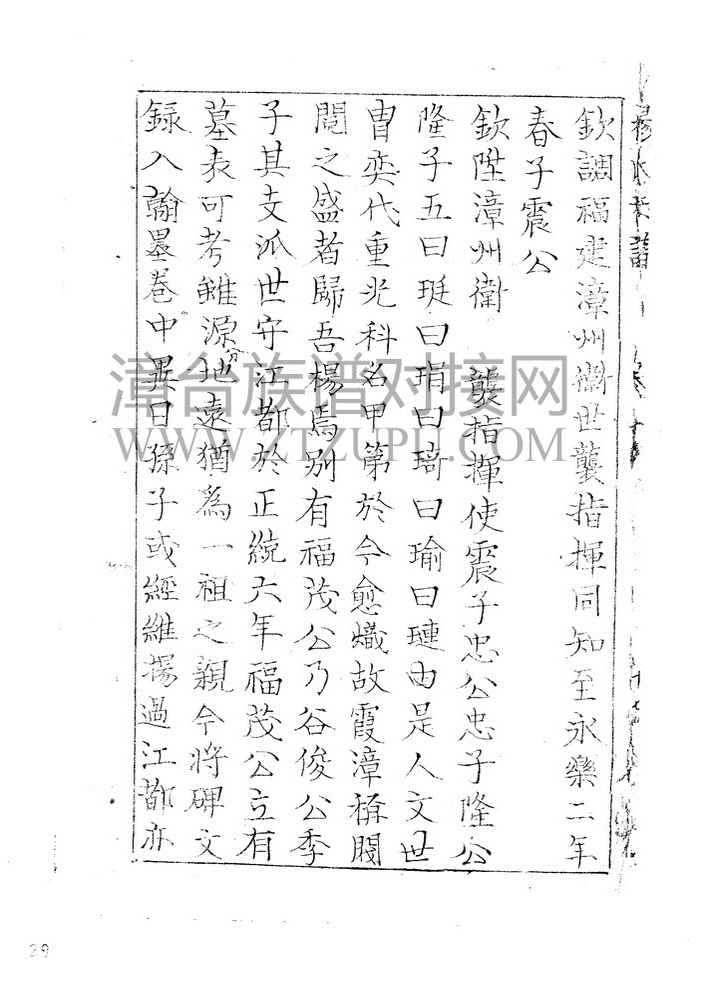 欽調福建漳州衛世襲指揮同知至永樂二年
春子震公
欽陞漳州衛 襲指揮使震子忠公忠子隆公
隆子五曰珽曰琄曰琦曰瑜曰璉由是人文世
冑奕代重光科名甲第於今愈熾故霞漳稱閥
閱之盛者歸吾楊焉別有福茂公乃谷俊公季
子其支派世守江都於正統六年福茂公立有
墓表可考雖源分地遠猶為一祖之親今將碑文
録入翰墨卷中異日孫子或經維揚過江都亦
漳台族谱对接网
WWW.ZTZUPU.COM
29